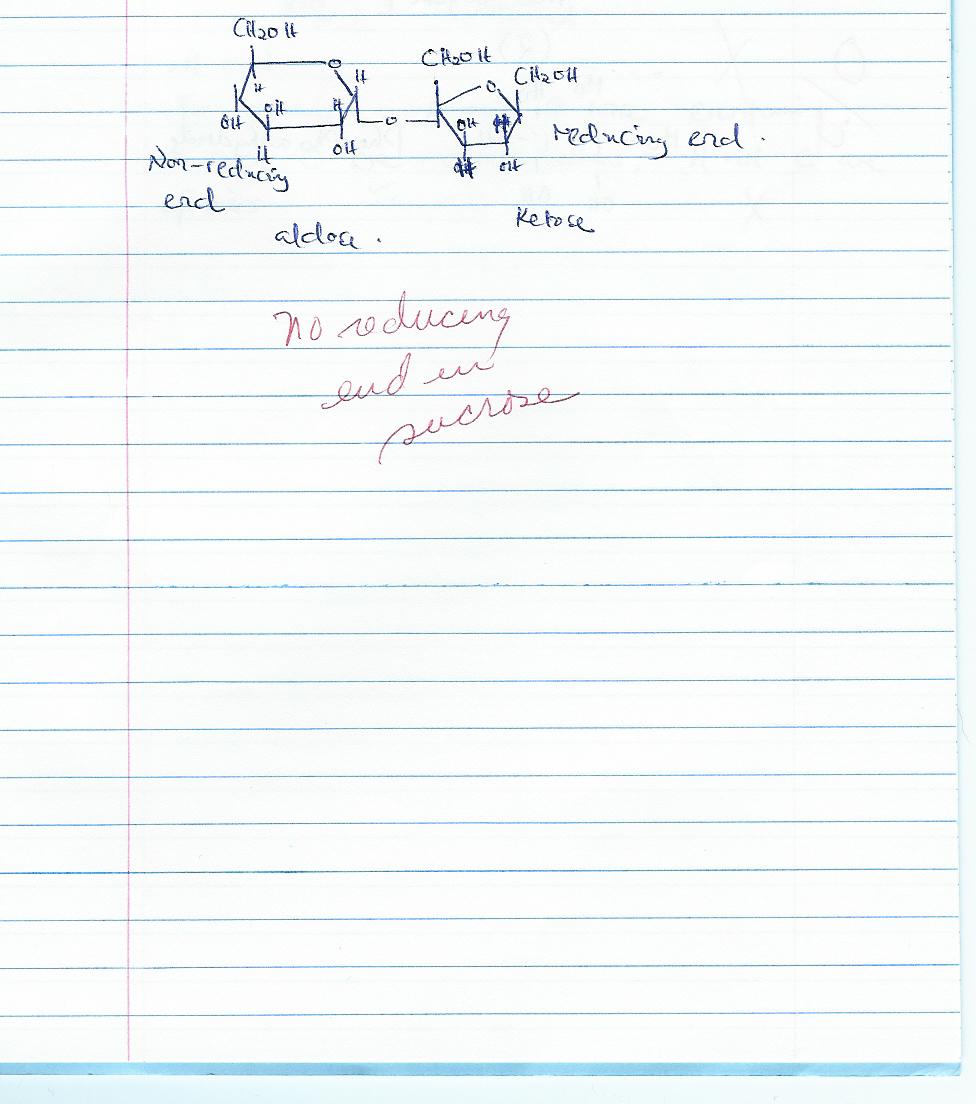 CH2OH
O
CH2OH
CH2OH
H
O
H
OH
H
OH
O
OH
reducing end.
OH
OH
H
Non-reducing
end
aldose.
Ketose
No reducing
end in
sucrose